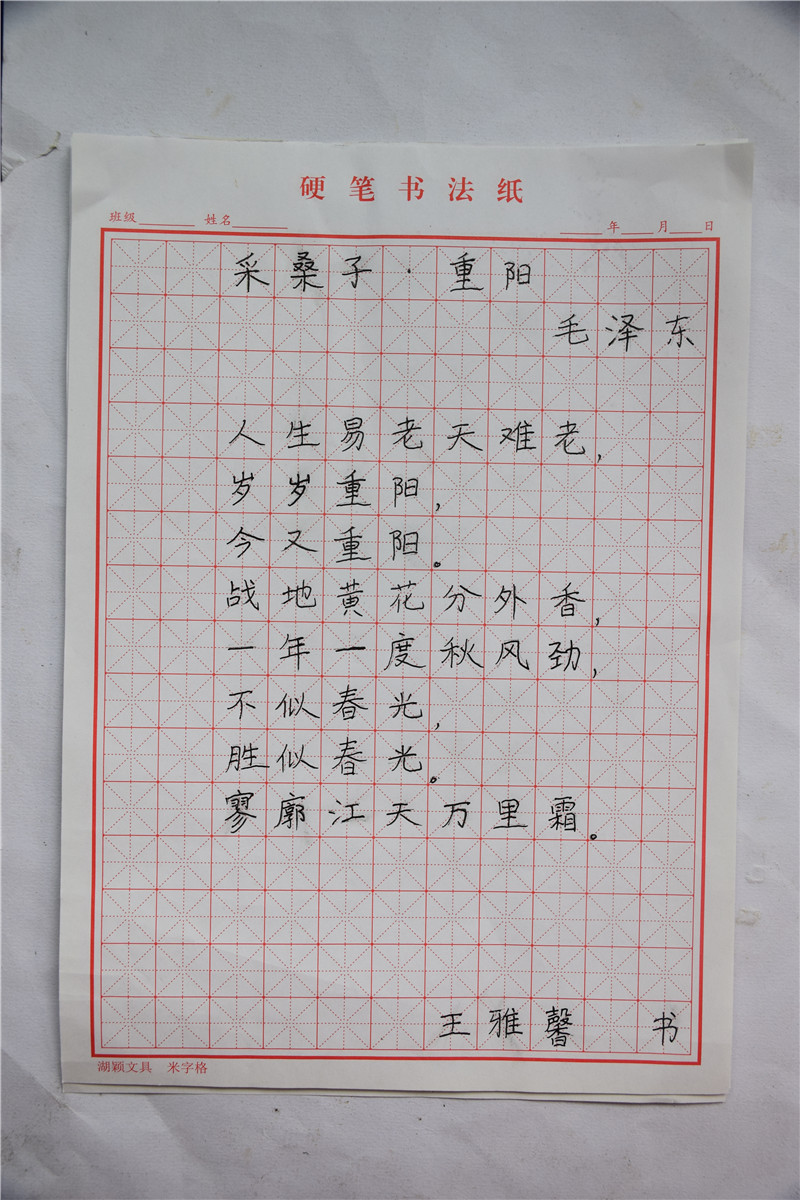 硬笔书法纸
班级 姓名 年 月 日
采桑子·重阳
毛泽东
人生易老天难老，
岁岁重阳，
今又重阳。
战地黄花分外香，
一年一度秋风劲，
不似春光，
胜似春光。
寥廓江天万里霜。
王雅馨 书
湖颖文具 米字格